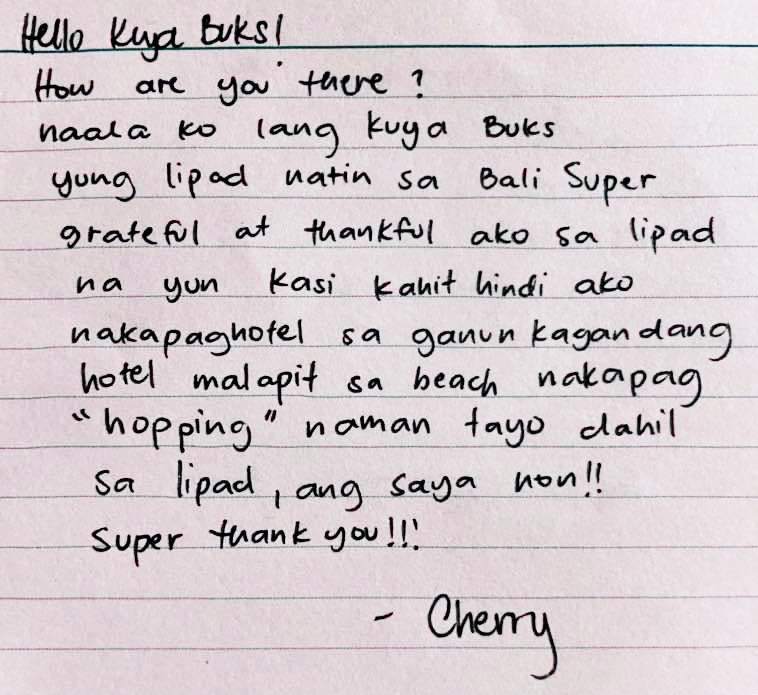 Hello Kuya Buks!
How are you there?
naala ko lang kuya Buks
yung lipad natin sa Bali Super
grateful at thankful ako sa lipad
na yun kasi kahit hindi ako
nakapaghotel sa ganun kagandang
hotel malapit sa beach nakapag
"hopping" naman tayo dahil
sa lipad, ang saya non!!
Super thank you!!!
- Cherry